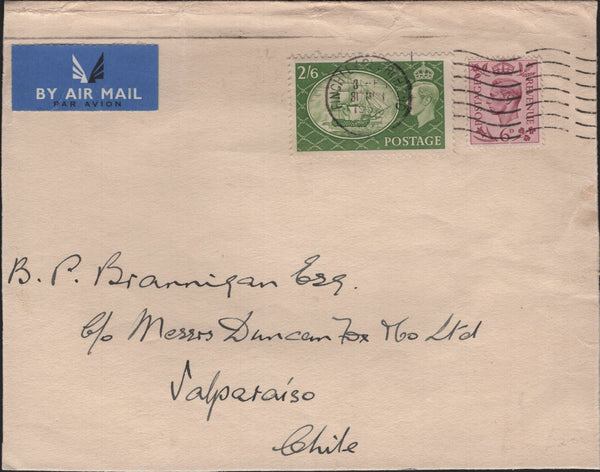 BY AIR MAIL
PAR AVION
2/6
POSTAGE
POSTAGE
REVENUE
6D
B. P. Brannigan Esq.
c/o Messrs Duncan Fox & Co Ltd
Valparaíso
Chile